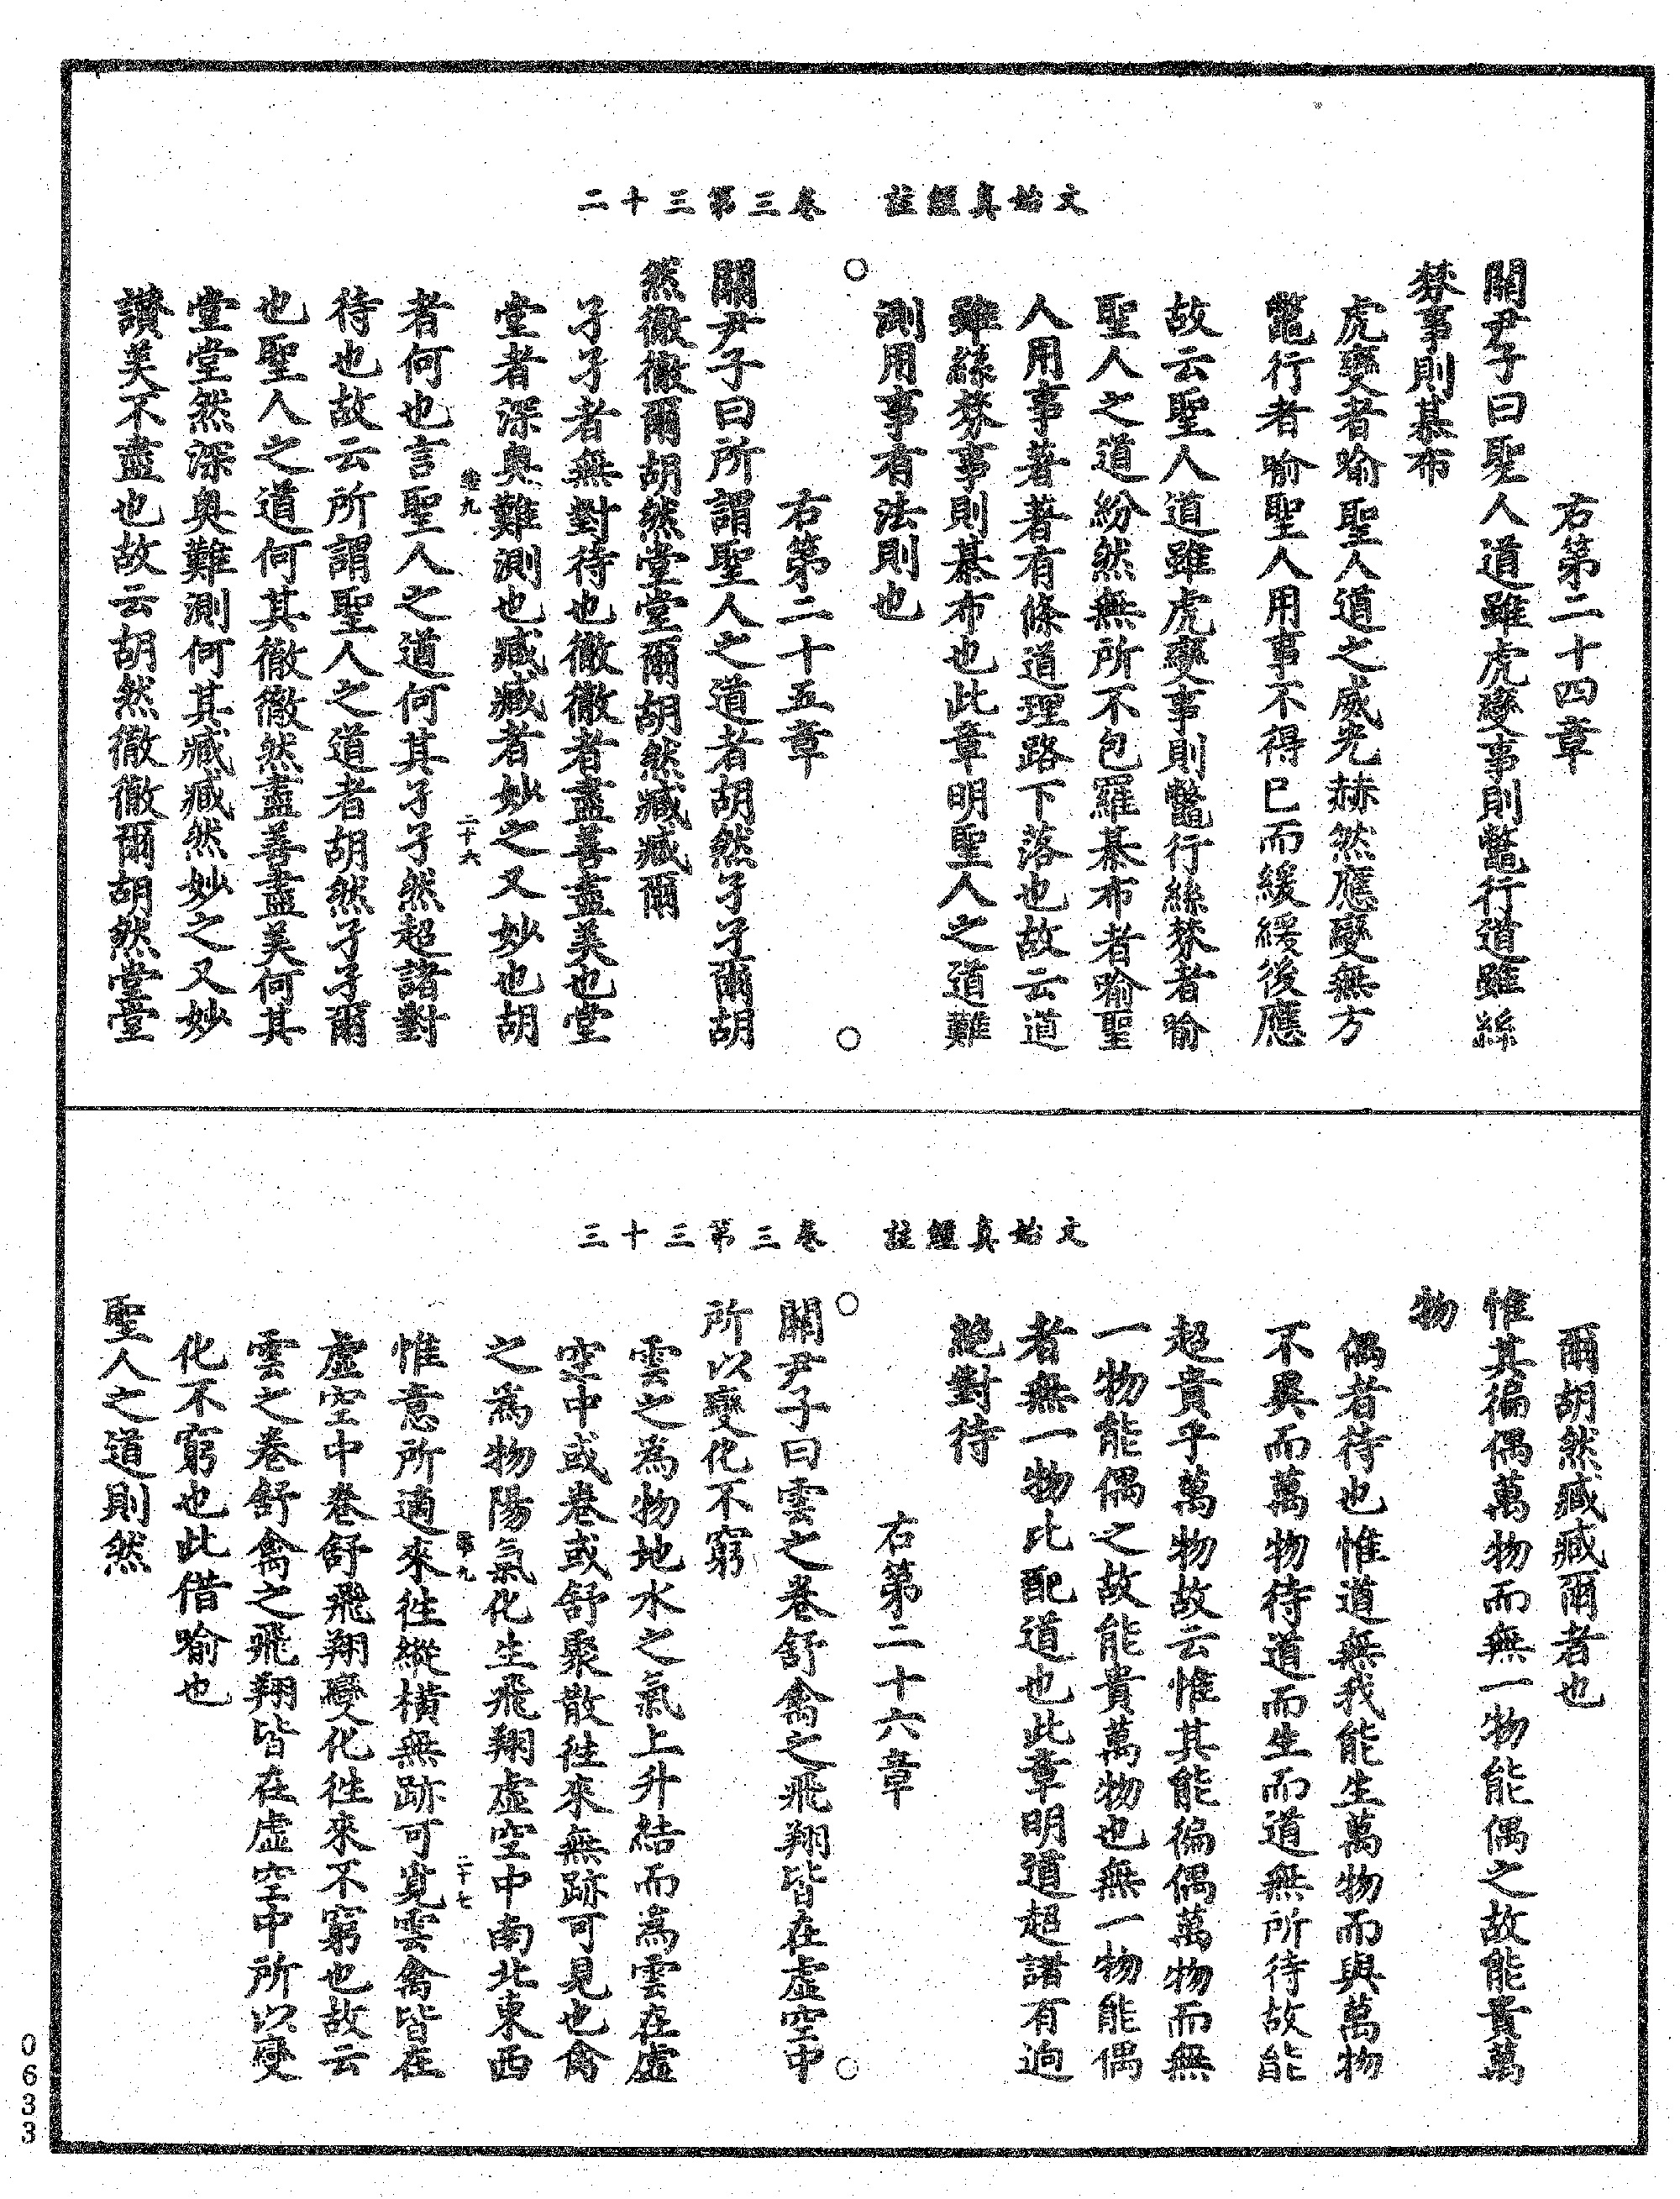 文始真經註　卷三第三十二
右第二十四章
關尹子曰聖人道雖虎變事則鼈行道雖絲
棼事則棊布
虎變者喻聖人道之威光赫然應變無方
鼈行者喻聖人用事不得已而緩緩後應
故云聖人道雖虎變事則鼈行絲棼者喻
聖人之道紛然無所不包羅棊布者喻聖
人用事著著有條道理路下落也故云道
雖絲棼事則棊布也此章明聖人之道難
測用事有法則也
○　○
右第二十五章
關尹子曰所謂聖人之道者胡然孑孑爾胡
然徹徹爾胡然堂堂爾胡然臧臧爾
孑孑者無對待也徹徹者盡善盡美也堂
堂者深奥難測也臧臧者妙之又妙也胡
卷九　二十六
者何也言聖人之道何其孑孑然超諸對
待也故云所謂聖人之道者胡然孑孑爾
也聖人之道何其徹徹然盡善盡美何其
堂堂然深奥難測何其臧臧然妙之又妙
讚美不盡也故云胡然徹徹爾胡然堂堂
文始真經註　卷三第三十三
爾胡然臧臧爾者也
惟其徧偶萬物而無一物能偶之故能貴萬
物
偶者待也惟道無我能生萬物而與萬物
不異而萬物待道而生而道無所待故能
超貴乎萬物故云惟其能徧偶萬物而無
一物能偶之故能貴萬物也無一物能偶
者無一物比配道也此章明道超諸有迥
絶對待
右第二十六章
○　○
關尹子曰雲之卷舒禽之飛翔皆在虛空中
所以變化不窮
雲之為物地水之氣上升結而為雲在虛
空中或卷或舒聚散徃來無跡可見也禽
之為物陽氣化生飛翔虛空中南北東西
卷九　二十七
惟意所適來徃縱橫無跡可覓雲禽皆在
虛空中卷舒飛翔變化徃來不窮也故云
雲之卷舒禽之飛翔皆在虛空中所以變
化不窮也此借喻也
聖人之道則然
0633